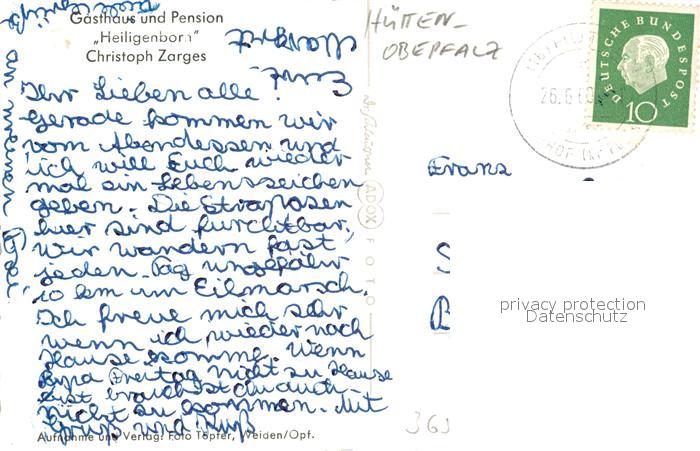 Gasthaus und Pension
„Heiligenborn"
Christoph Zarges
Ihr Lieben alle!
Gerade kommen wir
vom Abendessen und
ich will Euch wieder
mal ein Lebenszeichen
geben. Die Strapazen
hier sind furchtbar,
wir wandern fast
jeden Tag ungefähr
10 km im Eilmarsch.
Ich freue mich sehr
wenn ich wieder nach
Hause komme. Wenn
Freitag nicht zu Hause
ist brauchst du auch
nicht zu kommen. Mit
Gruß und Kuß
Aufnahme und Verlag: Foto Töpfer, Weiden/Opf.
ADOX
FOTO
HÜTTEN-
OBERPFALZ
DEUTSCHE BUNDESPOST
10
26.6.60
Franz
S
B
privacy protection
Datenschutz